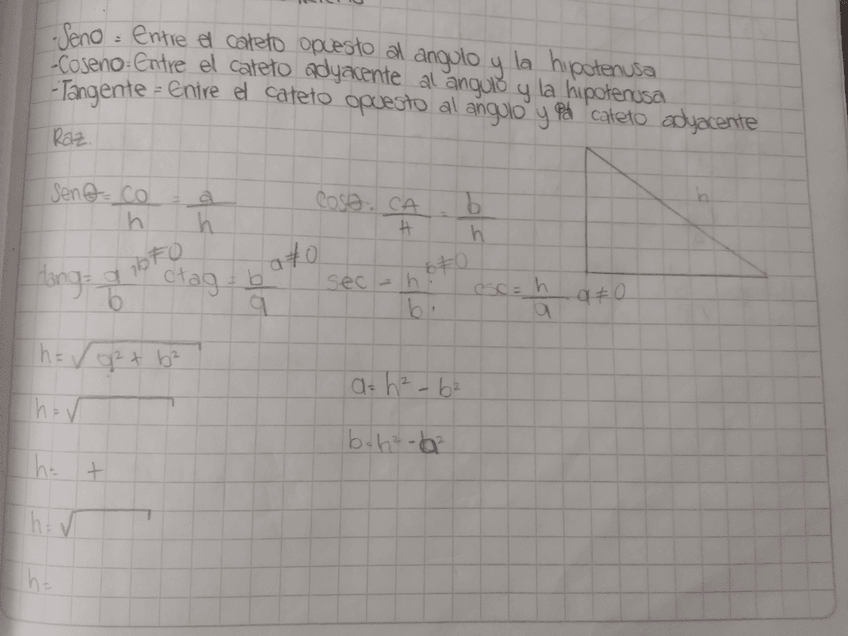 -Seno = Entre el cateto opuesto al angulo y la hipotenusa
-Coseno=Entre el cateto adyacente al angulo y la hipotenusa
-Tangente = Entre el cateto opuesto al angulo y cateto adyacente
Raz.
Senθ = CO/h = a/h cosθ = CA/H = b/h
h
tang = a/b, b≠0 ctag = b/a a≠0 sec = h/b b≠0 csc = h/a a≠0
h=√a² + b²
a= h² - b²
h=√
b=h²-a²
h= +
h=√
h=